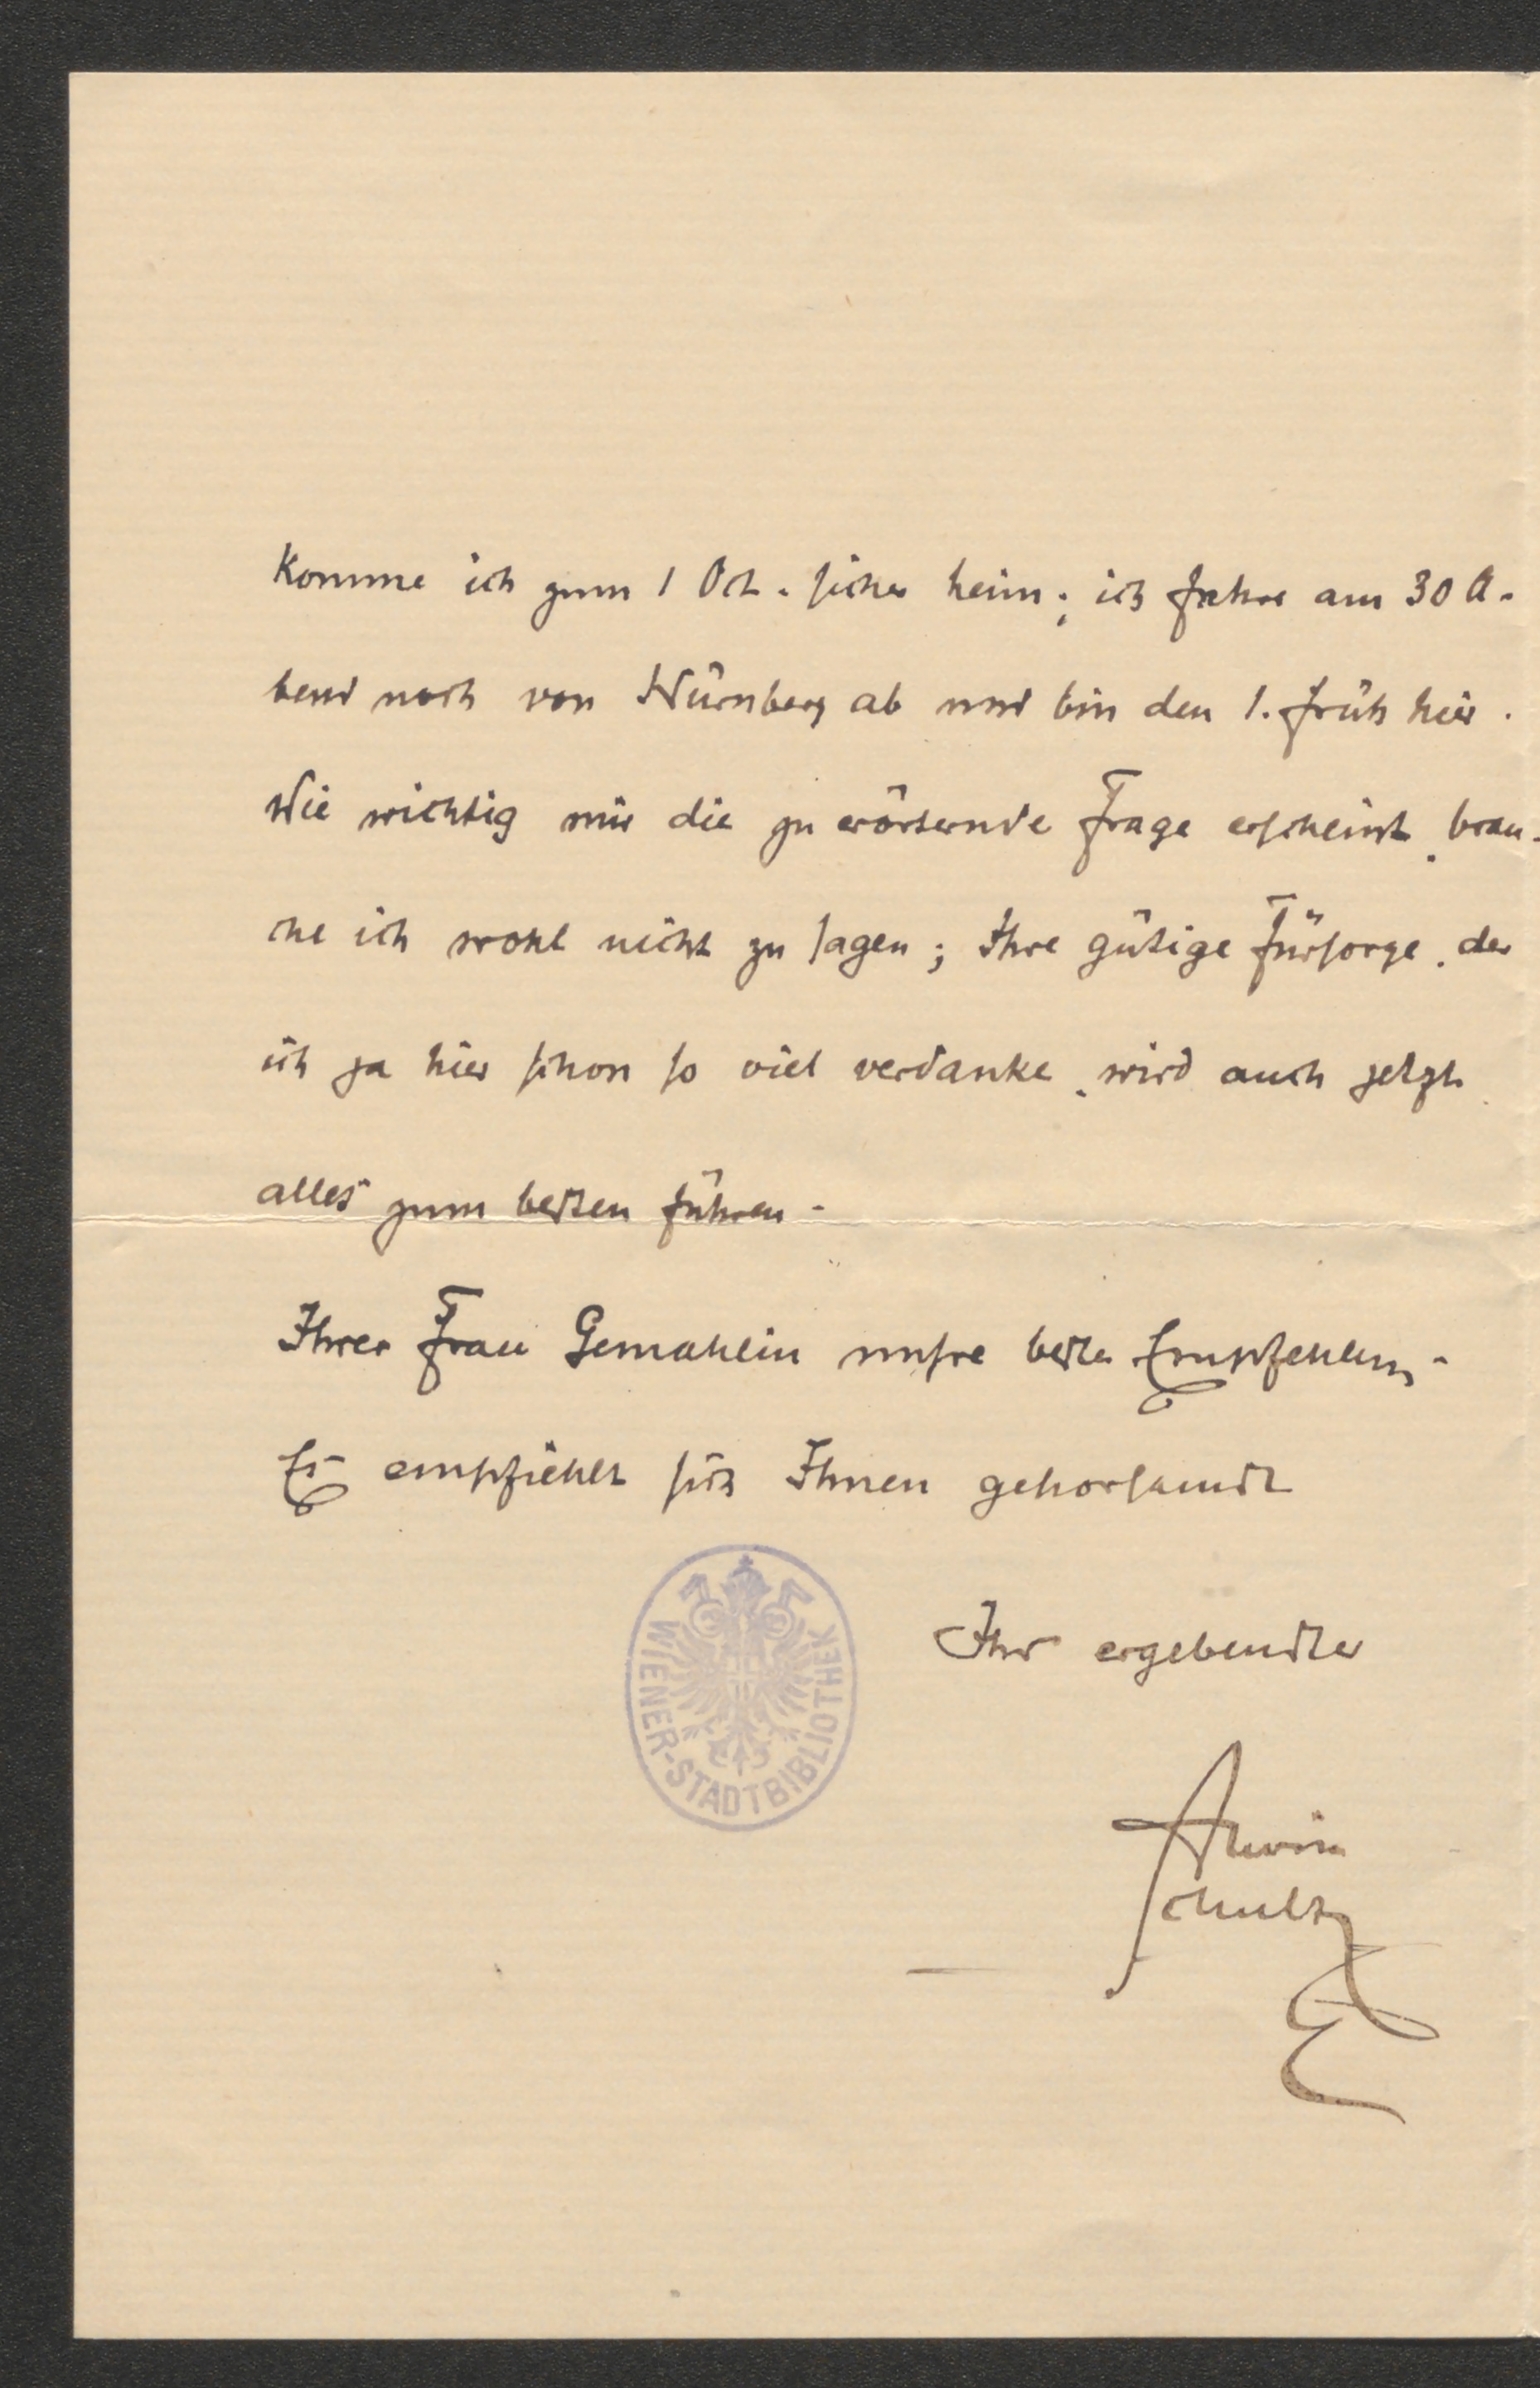 Komme ich zum 1 Oct. sicher heim; ich fahre am 30 A-
bend noch von Nürnberg ab und bin den 1. früh hier.
Wie wichtig mir die zu erörternde Frage erscheint, brau-
che ich wohl nicht zu sagen; Ihre gütige Fürsorge, der
ich ja hier schon so viel verdanke, wird auch jetzt
alles zum besten führen.
Ihrer Frau Gemahlin unsre beste Empfehlung.
Es empfiehlt sich Ihnen gehorsamst
Ihr ergebenster
Alwin
Schultz
WIENER-STADTBIBLIOTHEK